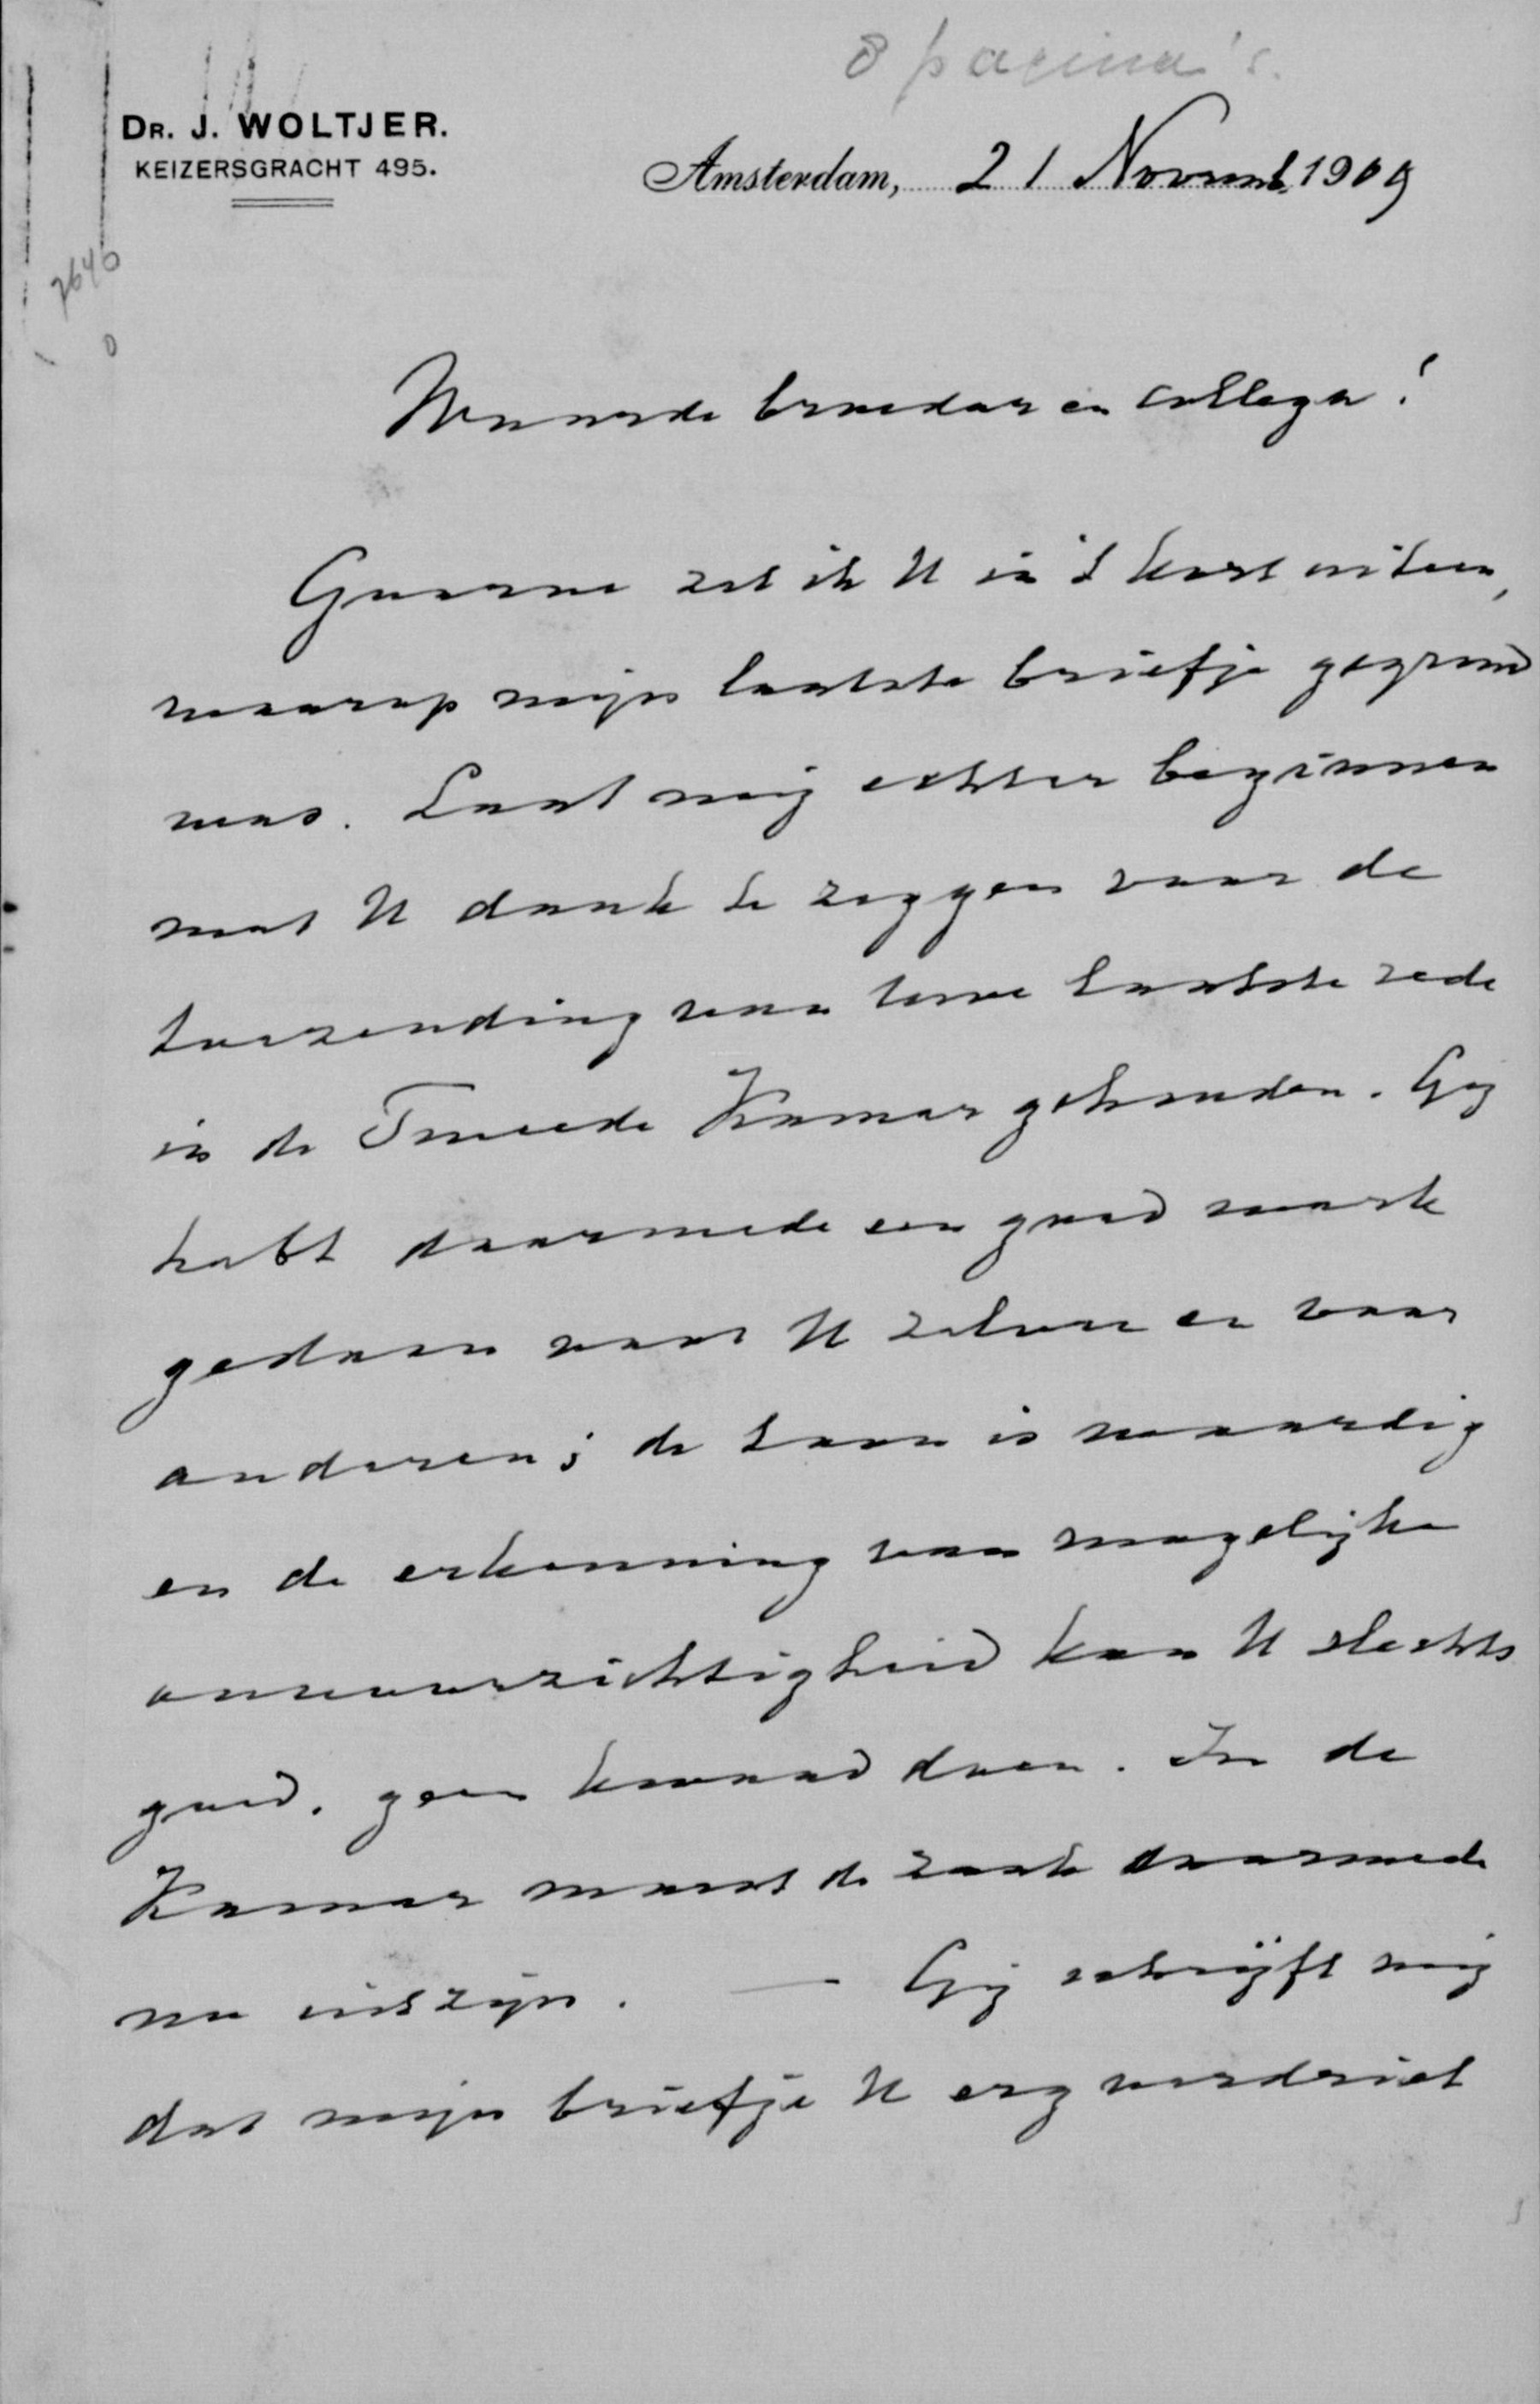 8 pagina's.
DR. J. WOLTJER.
KEIZERSGRACHT 495.
Amsterdam, 21 Novemb. 1909
7640
0
Waarde broeder en collega!
Gaarne zet ik U in 't kort uiteen,
waarop mijn laatste briefje gegrond
was. Laat mij echter beginnen
met U dank te zeggen voor de
toezending van Uwe laatste rede
in de Tweede Kamer gehouden. Gij
hebt daarmede een goed werk
gedaan voor U zelven en voor
anderen; de toon is waardig
en de erkenning van mogelijke
onvoorzichtigheid kan U slechts
goed, geen kwaad doen. In de
Kamer moest de zaak daarmede
nu uit zijn. — Gij schrijft mij
dat mijn briefje U erg verdriet